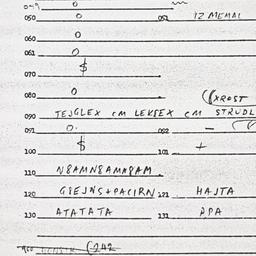 049 0
050 0 051 IZ MEMAL
060 0
061 0
070 $
080 0
(XROST
090 TEJGLEX CM LEKSEX CM STRUDL
091 0. 092 —
100 $ 101 +
110 N8AMN8AMN8AM
120 GIEJNS+PACIRN 121 HAJTA
130 ATATATA 131 PPA